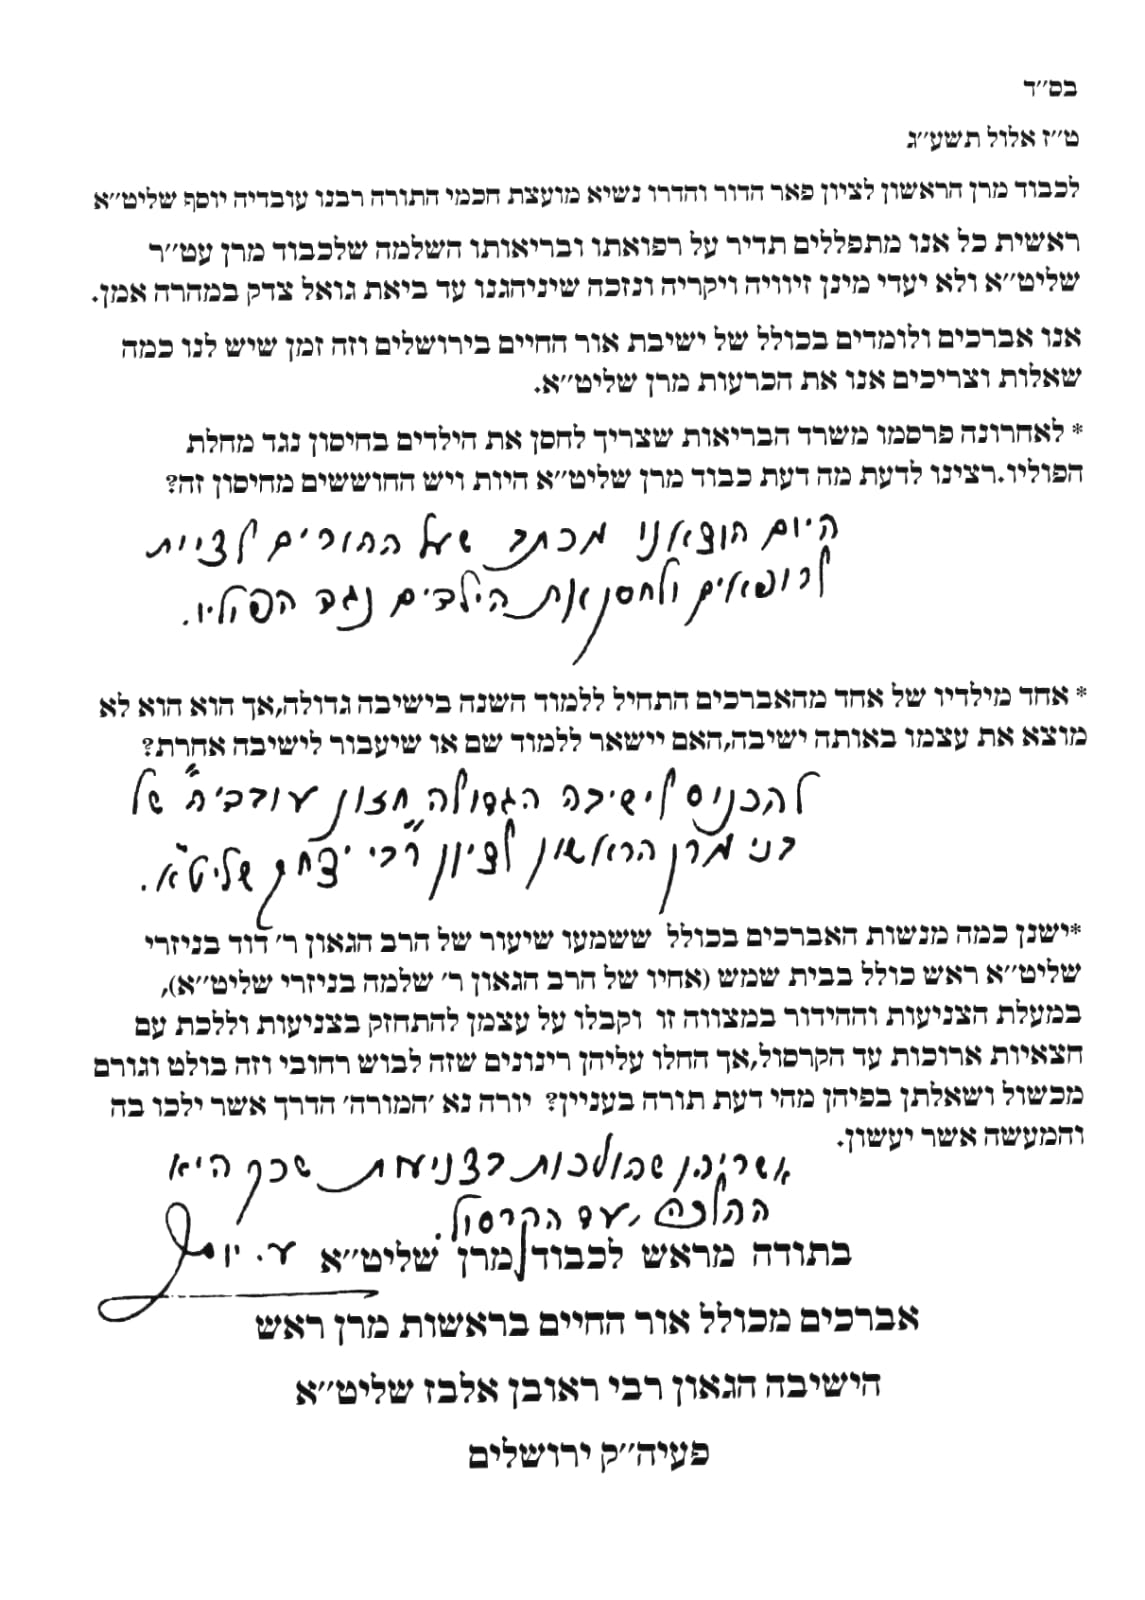 בס''ד
ט''ז אלול תשע''ג
לכבוד מרן הראשון לציון פאר הדור והדרו נשיא מועצת חכמי התורה רבנו עובדיה יוסף שליט''א
ראשית כל אנו מתפללים תדיר על רפואתו ובריאותו השלמה שלכבוד מרן עט''ר
שליט''א ולא יעדי מינן זיוויה ויקריה ונזכה שיניהגנו עד ביאת גואל צדק במהרה אמן.
אנו אברכים ולומדים בכולל של ישיבת אור החיים בירושלים וזה זמן שיש לנו כמה
שאלות וצריכים אנו את הכרעות מרן שליט''א.
* לאחרונה פרסמו משרד הבריאות שצריך לחסן את הילדים בחיסון נגד מחלת
הפוליו.רצינו לדעת מה דעת כבוד מרן שליט''א היות ויש החוששים מחיסון זה?
היום הוצאנו מכתב שעל ההורים לציית
לרופאים ולחסן את הילדים נגד הפוליו.
* אחד מילדיו של אחד מהאברכים התחיל ללמוד השנה בישיבה גדולה,אך הוא הוא לא
מוצא את עצמו באותה ישיבה,האם יישאר ללמוד שם או שיעבור לישיבה אחרת?
להכניס לישיבה הגדולה חזון עובדיה" של
בני מרן הראשון לציון רבי יצחק שליט"א.
*ישנן כמה מנשות האברכים בכולל ששמעו שיעור של הרב הגאון ר' דוד בניזרי
שליט''א ראש כולל בבית שמש (אחיו של הרב הגאון ר' שלמה בניזרי שליט''א),
במעלת הצניעות וההידור במצווה זו וקבלו על עצמן להתחזק בצניעות וללכת עם
חצאיות ארוכות עד הקרסול,אך החלו עליהן רינונים שזה לבוש רחובי וזה בולט וגורם
מכשול ושאלתן בפיהן מהי דעת תורה בעניין? יורה נא 'המורה' הדרך אשר ילכו בה
והמעשה אשר יעשון.
אשריהן שהולכות בצניעות שכך היא
ההלכה, עד הקרסול.
בתודה מראש לכבוד מרן שליט''א ע. יוסף
אברכים מכולל אור החיים בראשות מרן ראש
הישיבה הגאון רבי ראובן אלבז שליט''א
פעיה''ק ירושלים